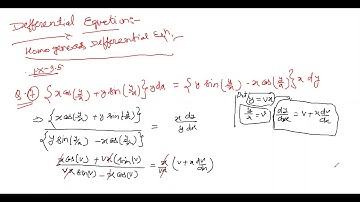 Differential Equetion:-
Homogeneous Differential Eqn.
EX-9.5
Q.7 {x cos(y/x) + y sin(y/x)} y dx = {y sin(y/x) - x cos(y/x)} x dy
Put y = vx
y/x = v
dy/dx = v + x dv/dx
⇒ {x cos(y/x) + y sin(y/x)} / {y sin(y/x) - x cos(y/x)} = x dy / y dx
x cos(v) + vx (sin(v) / vx sin(v) - x cos(v) = x/vx (v + x dv/dx)